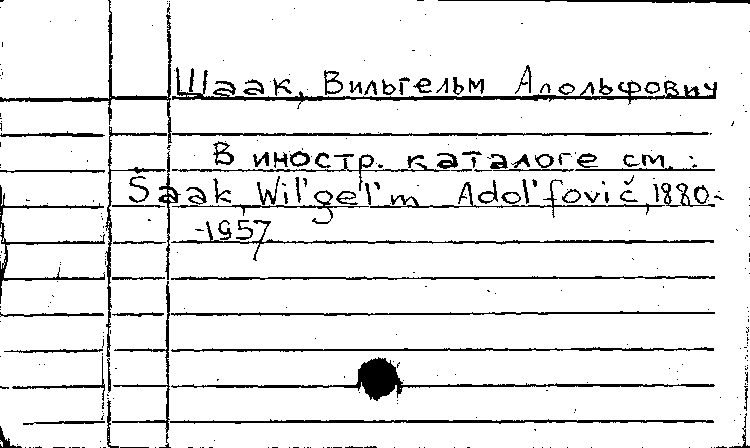 Шаак, Вильгельм Адольфович
В иностр. каталоге см.:
Šaak, Wil'gel'm Adol'fovič, 1880-
-1957